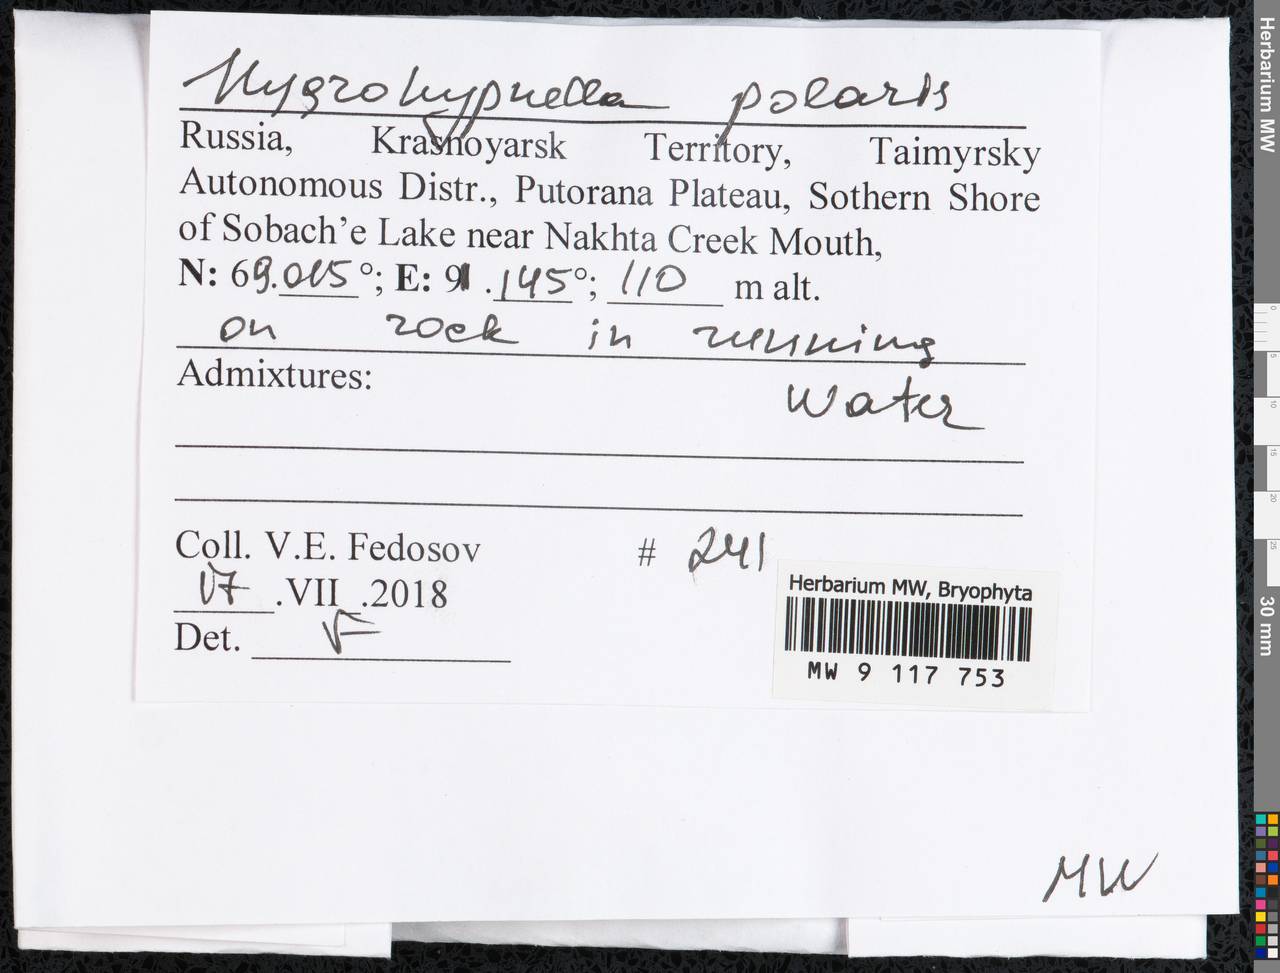 Hygrohypnella polaris
Russia, Krasnoyarsk Territory, Taimyrsky
Autonomous Distr., Putorana Plateau, Sothern Shore
of Sobach'e Lake near Nakhta Creek Mouth,
N: 69.015°; E: 91.145°; 110 m alt.
on rock in running
water
Admixtures:
Coll. V.E. Fedosov # 241
17.VII_.2018
Det. VF
Herbarium MW, Bryophyta
MW 9 117 753
MW
Herbarium MW
0
5
10
15
20
25
30 mm